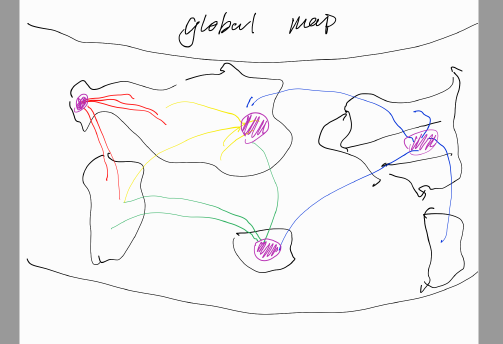 global map